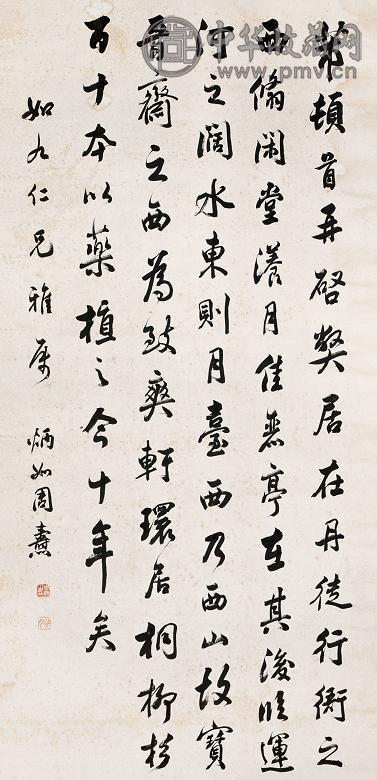 中华收藏网
www.pmv.cn
芾頓首再啓弊居在丹徒行衙之
西翛閑堂漾月佳麗亭在其後臨運
河之闊水東則月臺西乃西山故寶
晉齋之西為致爽軒環居桐柳杉
百十本以藥植之今十年矣
如九仁兄雅屬 炳如周